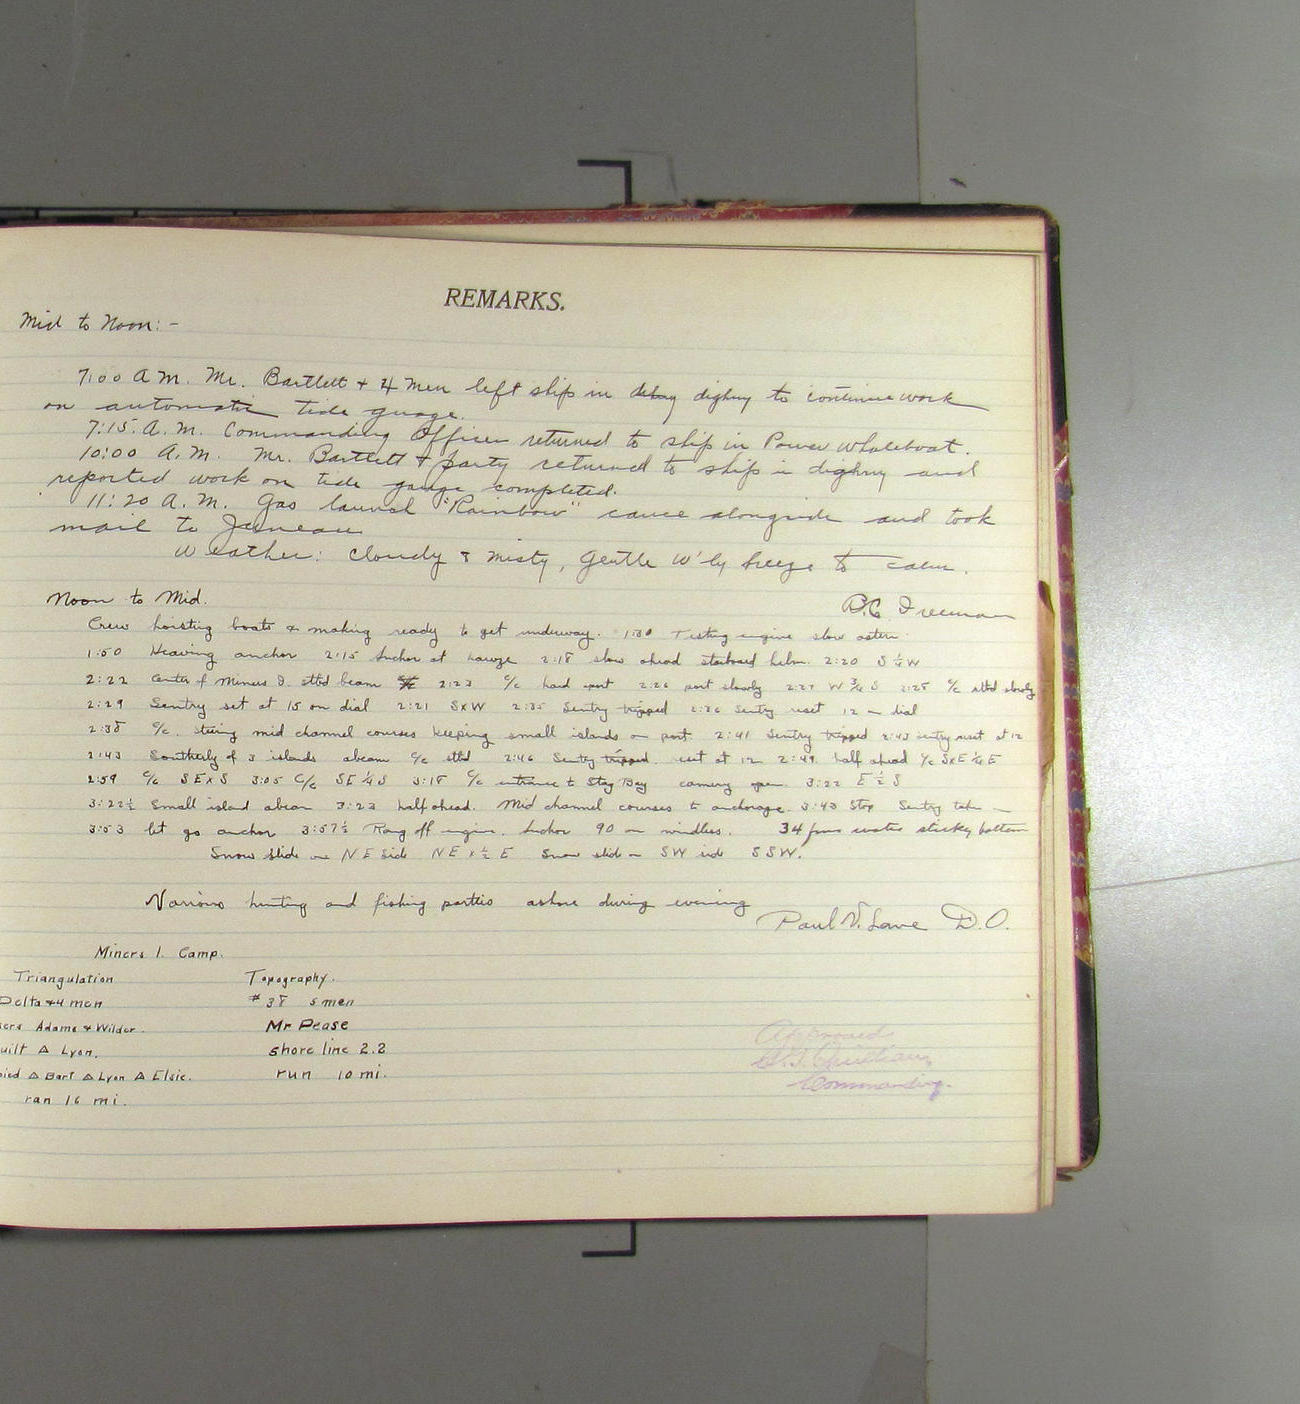 REMARKS.
Mid to Noon: -
7:00 A M. Mr. Bartlett + 4 Men left ship in dinghy to continue work
on automatic tide guage.
7:15. A. M. Commanding Officer returned to ship in Power Whaleboat.
10:00 A.M. Mr. Bartlett + party returned to ship in dighny and
reported work on tide gauge completed.
11:20 A. M. Gas launch "Rainbow" came alongside and took
mail to Juneau
Weather: Cloudy & Misty, Gentle W'ly breeze to calm.
R.C. Freeman
Noon to Mid.
Crew hoisting boats & making ready to get underway. 1:30 Testing engine slow astern
1:50 Heaving anchor 2:15 Anchor at hawse 2:18 slow ahead starboard helm. 2:20 S ½ W
2:22 Center of Miners I. stbd beam 2:23 C/c hard port 2:26 port slowly 2:27 W ¾ S 2:28 C/c stbd slowly
2:29 Sentry set at 15 on dial 2:21 SxW 2:35 Sentry tripped 2:36 Sentry reset 12 on dial
2:38 C/c. Steering mid channel courses keeping small islands on port. 2:41 Sentry tripped 2:43 sentry reset at 12
2:43 Southerly of 3 islands abeam C/c stbd 2:46 Sentry tripped. reset at 12 2:49 half ahead C/c SxE ¼ E
2:59 C/c SExS 3:05 C/c SE ¼ S 3:18 C/c entrance to Bay coming open. 3:22 E ½ S
3:22½ Small island abeam 3:23 half ahead. Mid channel courses to anchorage. 3:43 Stop Sentry taken in
3:53 let go anchor 3:57½ Rang off engine. Anchor 90 on windlass. 34 fms water sticky bottom
Snow slide on NE side NE x ½ E Snow slide on SW side SSW.
Various hunting and fishing parties ashore during evening
Paul V. Lane D.O.
Miners I. Camp.
Triangulation Topography.
Delta +4 men #38 5 men
Adams & Wilder. Mr Pease
Δ Lyon. shore line 2.2
Δ Bart Δ Lyon Δ Elsie. run 10 mi.
ran 16 mi.
Approved
Commanding.